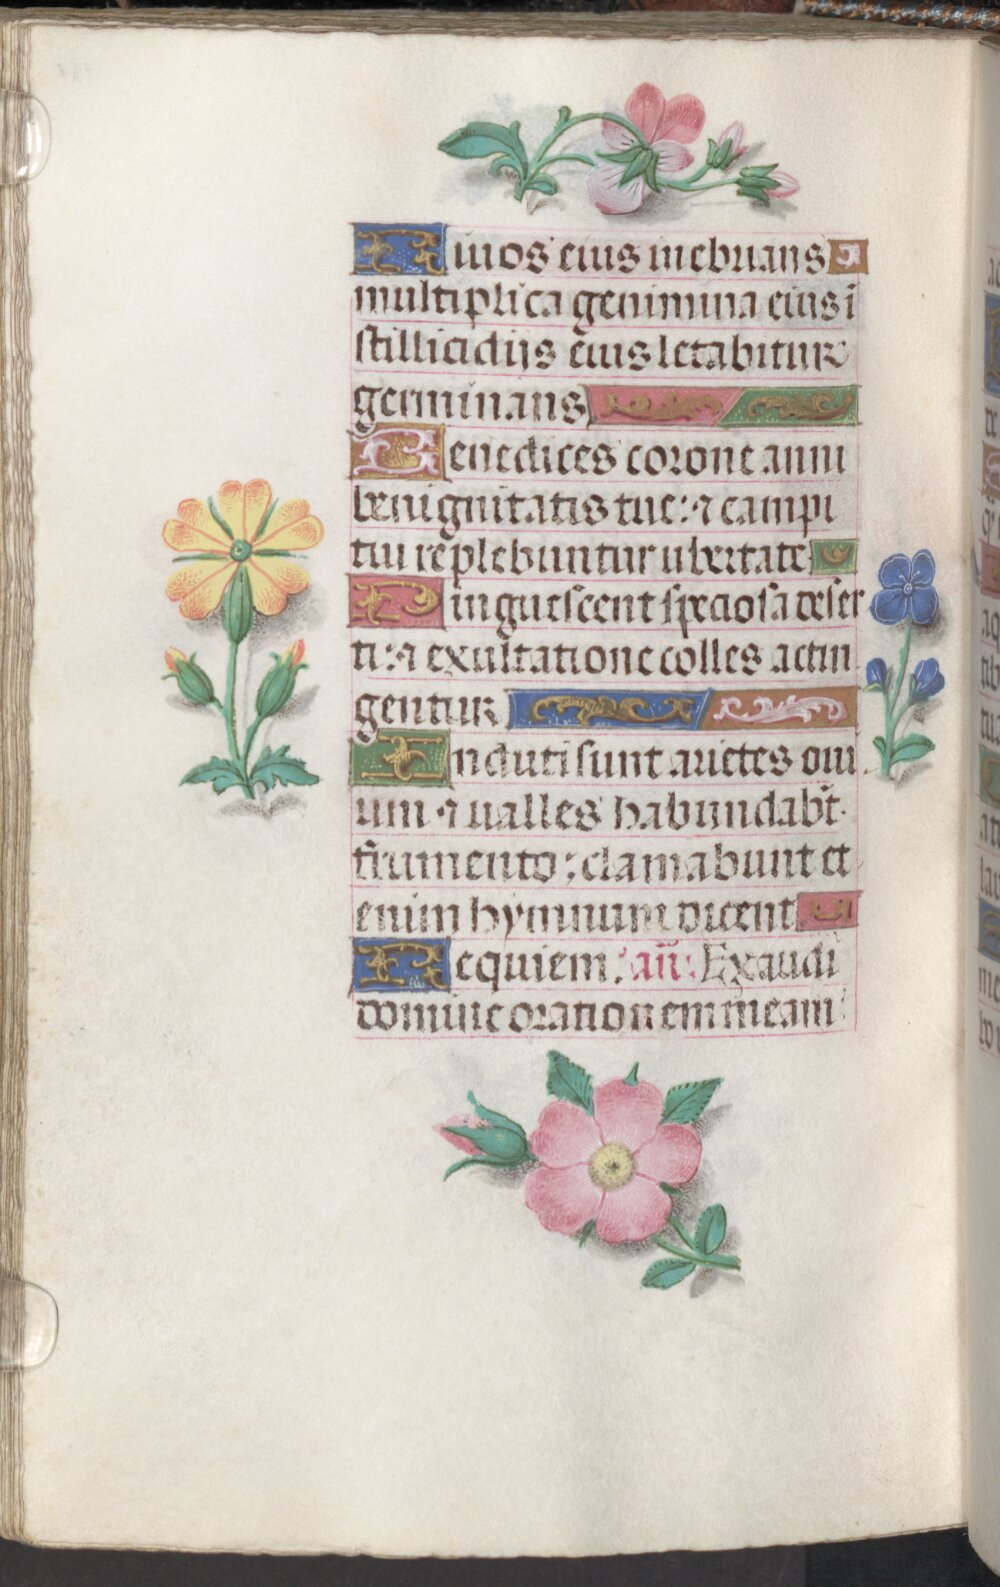 Riuos eius inebrians
multiplica genimina eius ī
stillicidiis eius letabitur
germinans
Benedices corone anni
benignitatis tue: ⁊ campi
tui replebuntur ubertate
Pinguescent speciosa deser
ti: ⁊ exultatione colles accin
gentur
Induti sunt arietes oui
um ⁊ ualles habundabt̄
frumento: clamabunt et
enim hymnum dicent
Requiem: añ: Exaudi
domine orationem meam